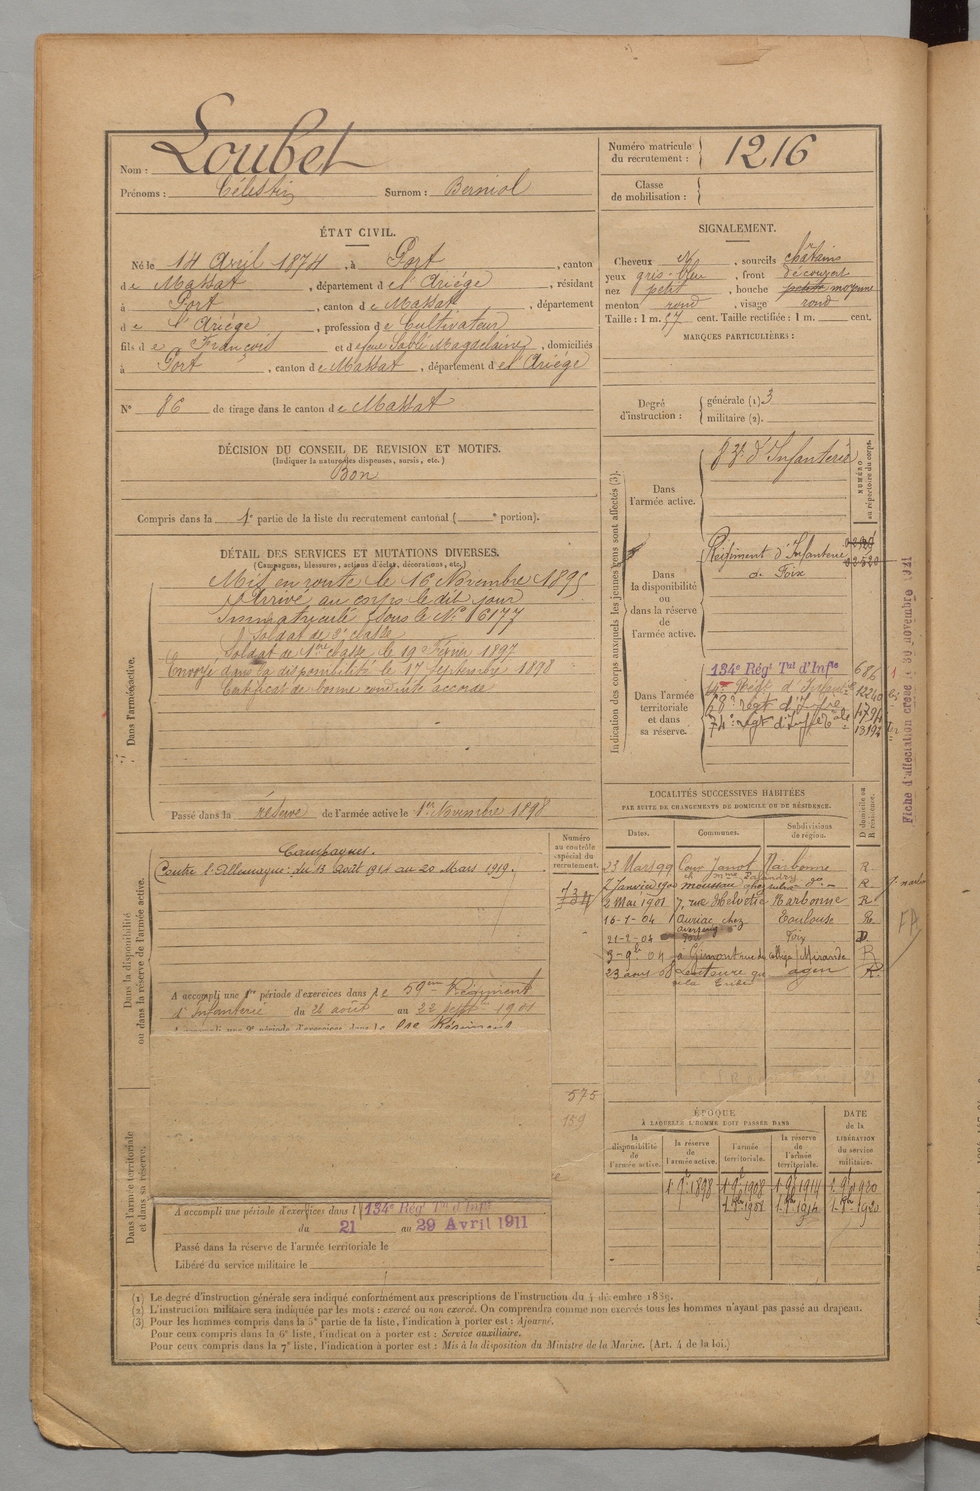 Nom : Loubet
Prénoms : Célestin Surnom : Berniol
Numéro matricule
du recrutement : 1216
Classe
de mobilisation :
ÉTAT CIVIL.
Né le 14 Avril 1874, à Port, canton
de Massat, département de l'Ariége, résidant
à Port, canton de Massat, département
de l'Ariége, profession de Cultivateur
fils de François et de feue Magdelaine, domiciliés
à Port, canton de Massat, département de l'Ariége
N° 86 de tirage dans le canton de Massat
SIGNALEMENT.
Cheveux , sourcils châtains
yeux gris-bleu, front découvert
nez petit, bouche petite moyenne
menton rond, visage rond
Taille : 1 m. 57 cent. Taille rectifiée : 1 m. cent.
MARQUES PARTICULIÈRES :
Degré
d'instruction :
générale (1). 3
militaire (2).
DÉCISION DU CONSEIL DE REVISION ET MOTIFS.
(Indiquer la nature des dispenses, sursis, etc.)
Bon
Compris dans la 1e partie de la liste du recrutement cantonal ( e portion).
DÉTAIL DES SERVICES ET MUTATIONS DIVERSES.
(Campagnes, blessures, actions d'éclat, décorations, etc.)
Dans l'armée active.
Mis en route le 16 Novembre 1895
Arrivé au corps le dit jour
Immatriculé sous le N° 6177
Soldat de 2e classe
Soldat de 1ère classe le 19 Février 1897
Envoyé dans la disponibilité le 17 Septembre 1898
Certificat de bonne conduite accordé
Passé dans la réserve de l'armée active le 1er Novembre 1898
Indication des corps auxquels les jeunes gens sont affectés (3).
NUMÉRO
au répertoire du corps.
Dans
l'armée active.
d'Infanterie
Dans
la disponibilité
ou
dans la réserve
de
l'armée active.
Régiment d'Infanterie
de Foix
02520
Dans l'armée
territoriale
et dans
sa réserve.
134e Régt Tal d'Infie 686
Régt d'Infanterie 12240
Régt d'Infie
74e Régt d'Infie Tale
Fiche d'affectation créée le 30 novembre 1921
LOCALITÉS SUCCESSIVES HABITÉES
PAR SUITE DE CHANGEMENTS DE DOMICILE OU DE RÉSIDENCE.
D domicile ou
R résidence.
Dates. Communes. Subdivisions
de région.
23 Mars 99 Narbonne R.
7 Janvier 1900 Moussan R.
2 Mai 1901 7, rue Helvétie Narbonne R
16-1-04 Auriac chez Toulouse R.
21-2-04 Port Foix D
à Gimont rue du collège Mirande R
23 Lectoure agen R.
Numéro
au contrôle
spécial du
recrutement.
734
575
159
Dans la disponibilité
ou dans la réserve de l'armée active.
Campagnes.
Contre l'Allemagne : du 13 Août 1914 au 20 Mars 1919.
A accompli une 1re période d'exercices dans le 59eme Régiment
d'Infanterie du 26 août au 22 septbre 1901
Dans l'armée territoriale
et dans sa réserve.
A accompli une période d'exercices dans l 134e Régt Tal d'Infie
du 21 au 29 Avril 1911
Passé dans la réserve de l'armée territoriale le
Libéré du service militaire le
ÉPOQUE
À LAQUELLE L'HOMME DOIT PASSER DANS
DATE
de la
LIBÉRATION
du service
militaire.
la
disponibilité
de
l'armée active.
la réserve
de
l'armée active.
l'armée
territoriale.
la réserve
de
l'armée
territoriale.
1. 9bre 1898 1. 9bre 1908 1. 9bre 1914 1. 9bre 1920
(1) Le degré d'instruction générale sera indiqué conformément aux prescriptions de l'instruction du 4 décembre 1889.
(2) L'instruction militaire sera indiquée par les mots : exercé ou non exercé. On comprendra comme non exercés tous les hommes n'ayant pas passé au drapeau.
(3) Pour les hommes compris dans la 5e partie de la liste, l'indication à porter est : Ajourné.
Pour ceux compris dans la 6e liste, l'indication à porter est : Service auxiliaire.
Pour ceux compris dans la 7e liste, l'indication à porter est : Mis à la disposition du Ministre de la Marine. (Art. 4 de la loi.)